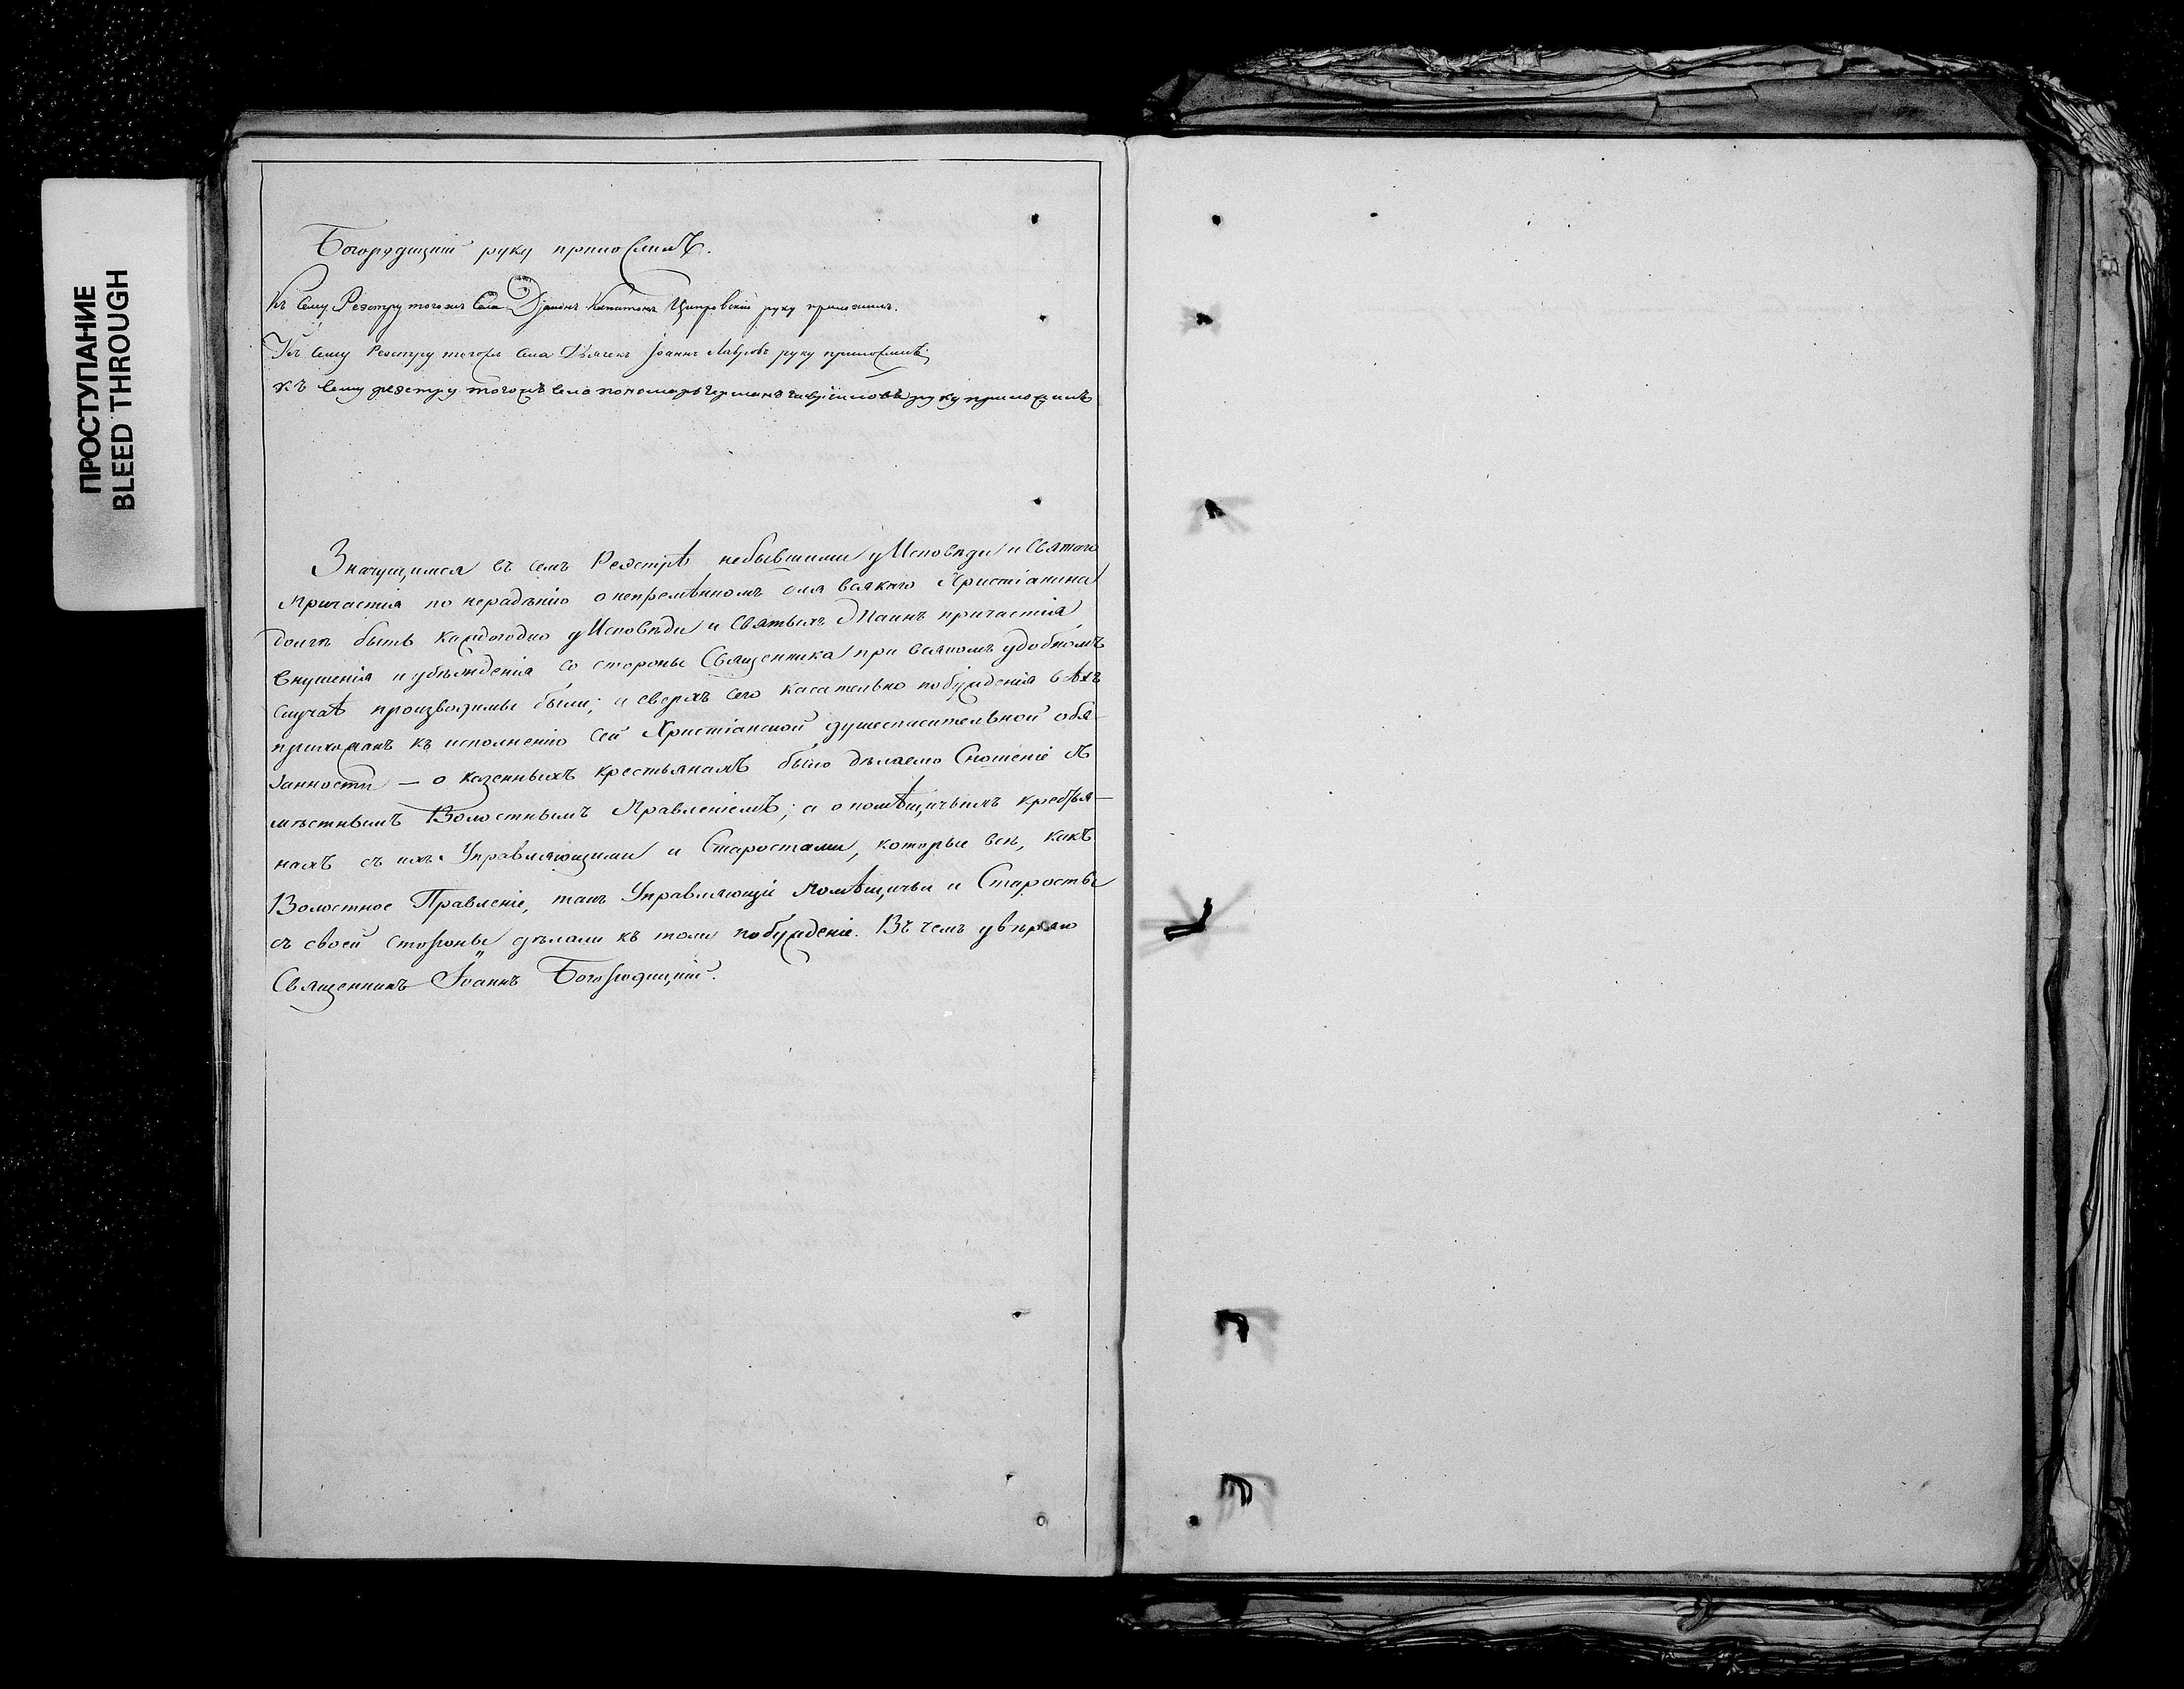 ПРОСТУПАНИЕ
BLEED THROUGH
Богородицкій руку приложилъ.
Къ сему Реэстру тогожъ Села Діаконъ Капитонъ Ципровскій руку приложилъ.
Къ сему Реэстру тогожъ села Дьячекъ Іоаннъ Лавровъ руку приложилъ
къ сему реэстру тогожъ села пономарь Германъ руку приложилъ
Значущимся въ семъ Реэстрѣ небывшими у Исповѣди и Святаго
Причастія по нерадѣнію о непремѣнномъ для всякаго Христіанина
долгѣ быть каждогодно у Исповѣди и Святыхъ Таинъ причастія
внушенія и убѣжденія со стороны Священника при всякомъ удобномъ
случаѣ производимы были; а сверхъ сего касательно побужденія сѣхъ
прихожанъ къ исполненію сей Христіанской душеспасительной обя-
занности — о казенныхъ крестьянахъ было дѣлаемо Сношеніе съ
мѣстнымъ Волостнымъ Правленіемъ; а о помѣщичьихъ крестья-
нахъ съ ихъ Управляющими и Старостами, которые всѣ, какъ
Волостное Правленіе, такъ Управляющіе помѣщичьи и Старосты
съ своей стороны дѣлали къ тому побужденіе. Въ чемъ увѣряю
Священникъ Іоаннъ Богородицкій.